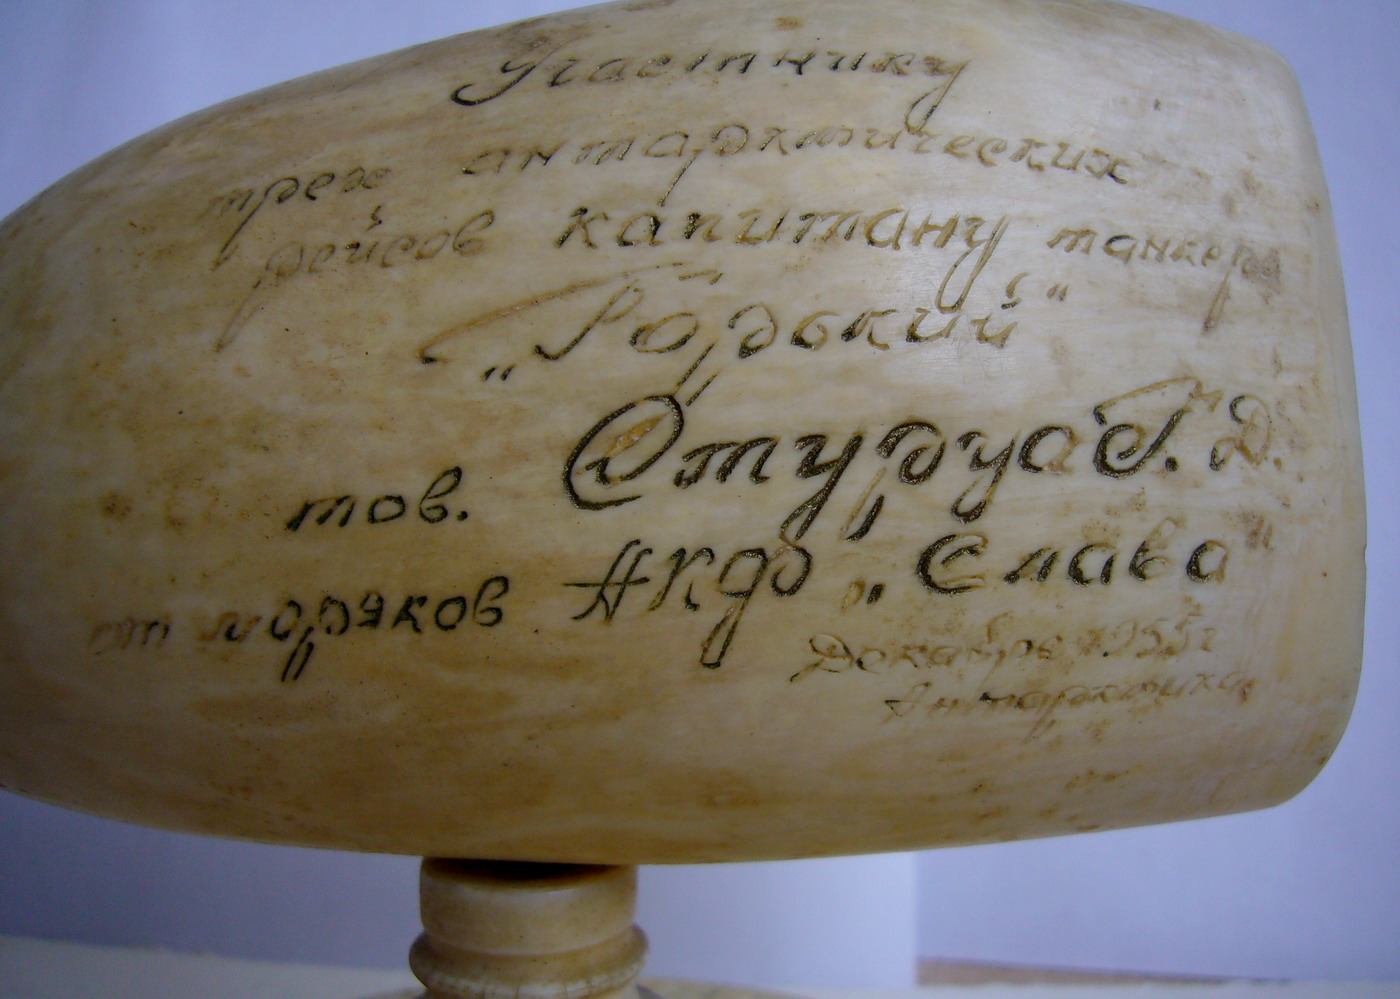 Участнику
трех антарктических
рейсов капитану танкера
„Горький"
тов. Стуруа Г. Д.
от моряков АКДФ „Слава"
Декабрь 1955г
Антарктика